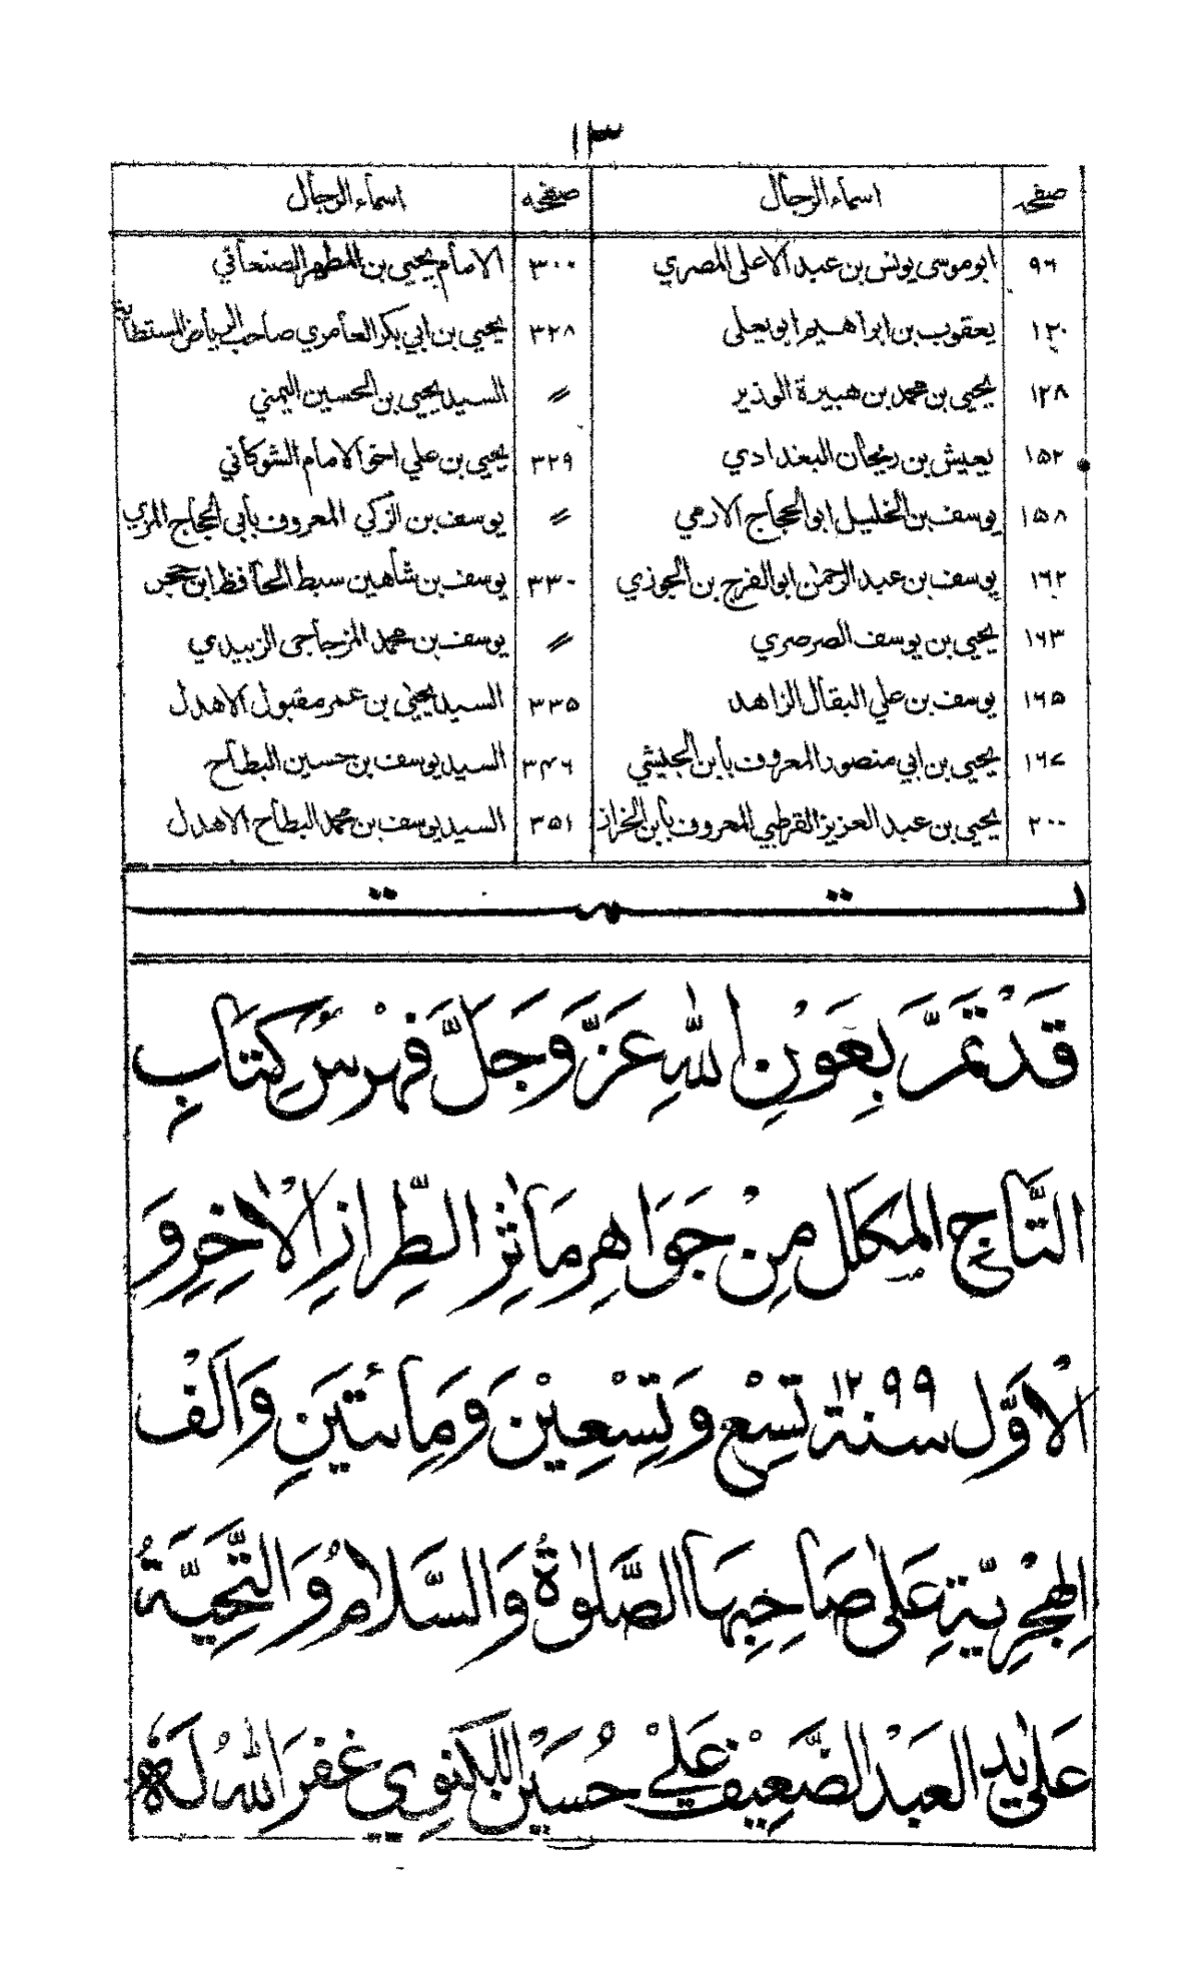 ١٣
صفحه اسماء الرجال صفحه اسماء الرجال
٩٦ ابو موسى يونس بن عبد الاعلى المصري ٣٠٠ الامام يحيى بن المطهر الصنعاني
١٢٠ يعقوب بن ابراهيم ابو يعلى ٣٢٨ يحيى بن ابي بكر العامري صاحب الرياض المستطابة
١٢٨ يحيى بن محمد بن هبيرة الوزير 〃 السيد يحيى بن الحسين اليمني
١٥٢ يعيش بن ريحان البغدادي ٣٢٩ يحيى بن علي اخو الامام الشوكاني
١٥٨ يوسف بن الخليل ابو الحجاج الادمي 〃 يوسف بن الزكي المعروف بابي الحجاج المزي
١٦٢ يوسف بن عبد الرحمن ابو الفرج بن الجوزي ٣٣٠ يوسف بن شاهين سبط الحافظ ابن حجر
١٦٣ يحيى بن يوسف الصرصري 〃 يوسف بن محمد المزجاجى الزبيدي
١٦٥ يوسف بن علي البقال الزاهد ٣٣٥ السيد يحيى بن عمر مقبول الاهدل
١٦٧ يحيى بن ابي منصور المعروف بابن الحبيشي ٣٤٦ السيد يوسف بن حسين البطاح
٢٠٠ يحيى بن عبد العزيز القرطبي المعروف بابن الخراز ٣٥١ السيد يوسف بن محمد البطاح الاهدل
تمت
قَدْ تَمَّ بِعَوْنِ اللهِ عَزَّ وَجَلَّ فِهْرِسُ كِتَابِ
التَّاجِ المُكَلَّلِ مِنْ جَوَاهِرِ مَآثِرِ الطِّرَازِ الْاٰخِرِ وَ
الْاَوَّلِ سنة ١٢٩٩ تِسْعٍ وَتِسْعِيْنَ وَمِائَتَيَنِ وَاَلْفٍ
الهِجْرِيَّةِ عَلىٰ صَاحِبِهَا الصَّلوٰةُ وَالسَّلَامُ وَالتَّحِيَّةُ
عَلىٰ يد العَبْدِ الضَّعِيْفِ عَلِيْ حُسَيْن اللكنوِي غفرَ اللهُ لَهُ